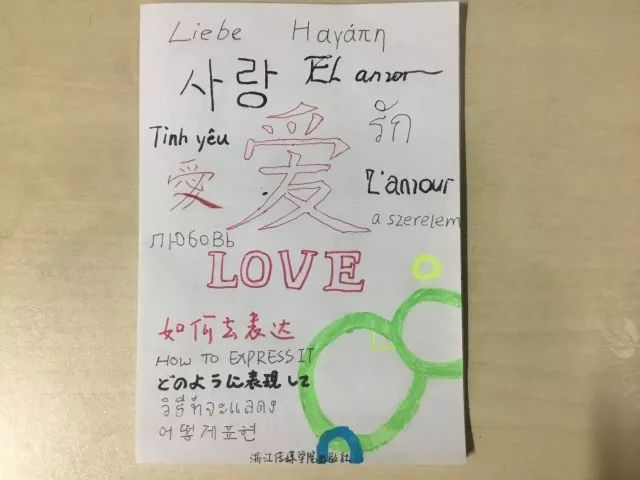 Liebe Ηαγάπη
사랑 EL amor
Tình yêu 爱 รัก
愛 L'amour
a szerelem
любовь
LOVE
如何去表达
HOW TO EXPRESS IT
どのように表現して
วิธีที่จะแสดง
어떻게표현
浙江传媒学院出版社